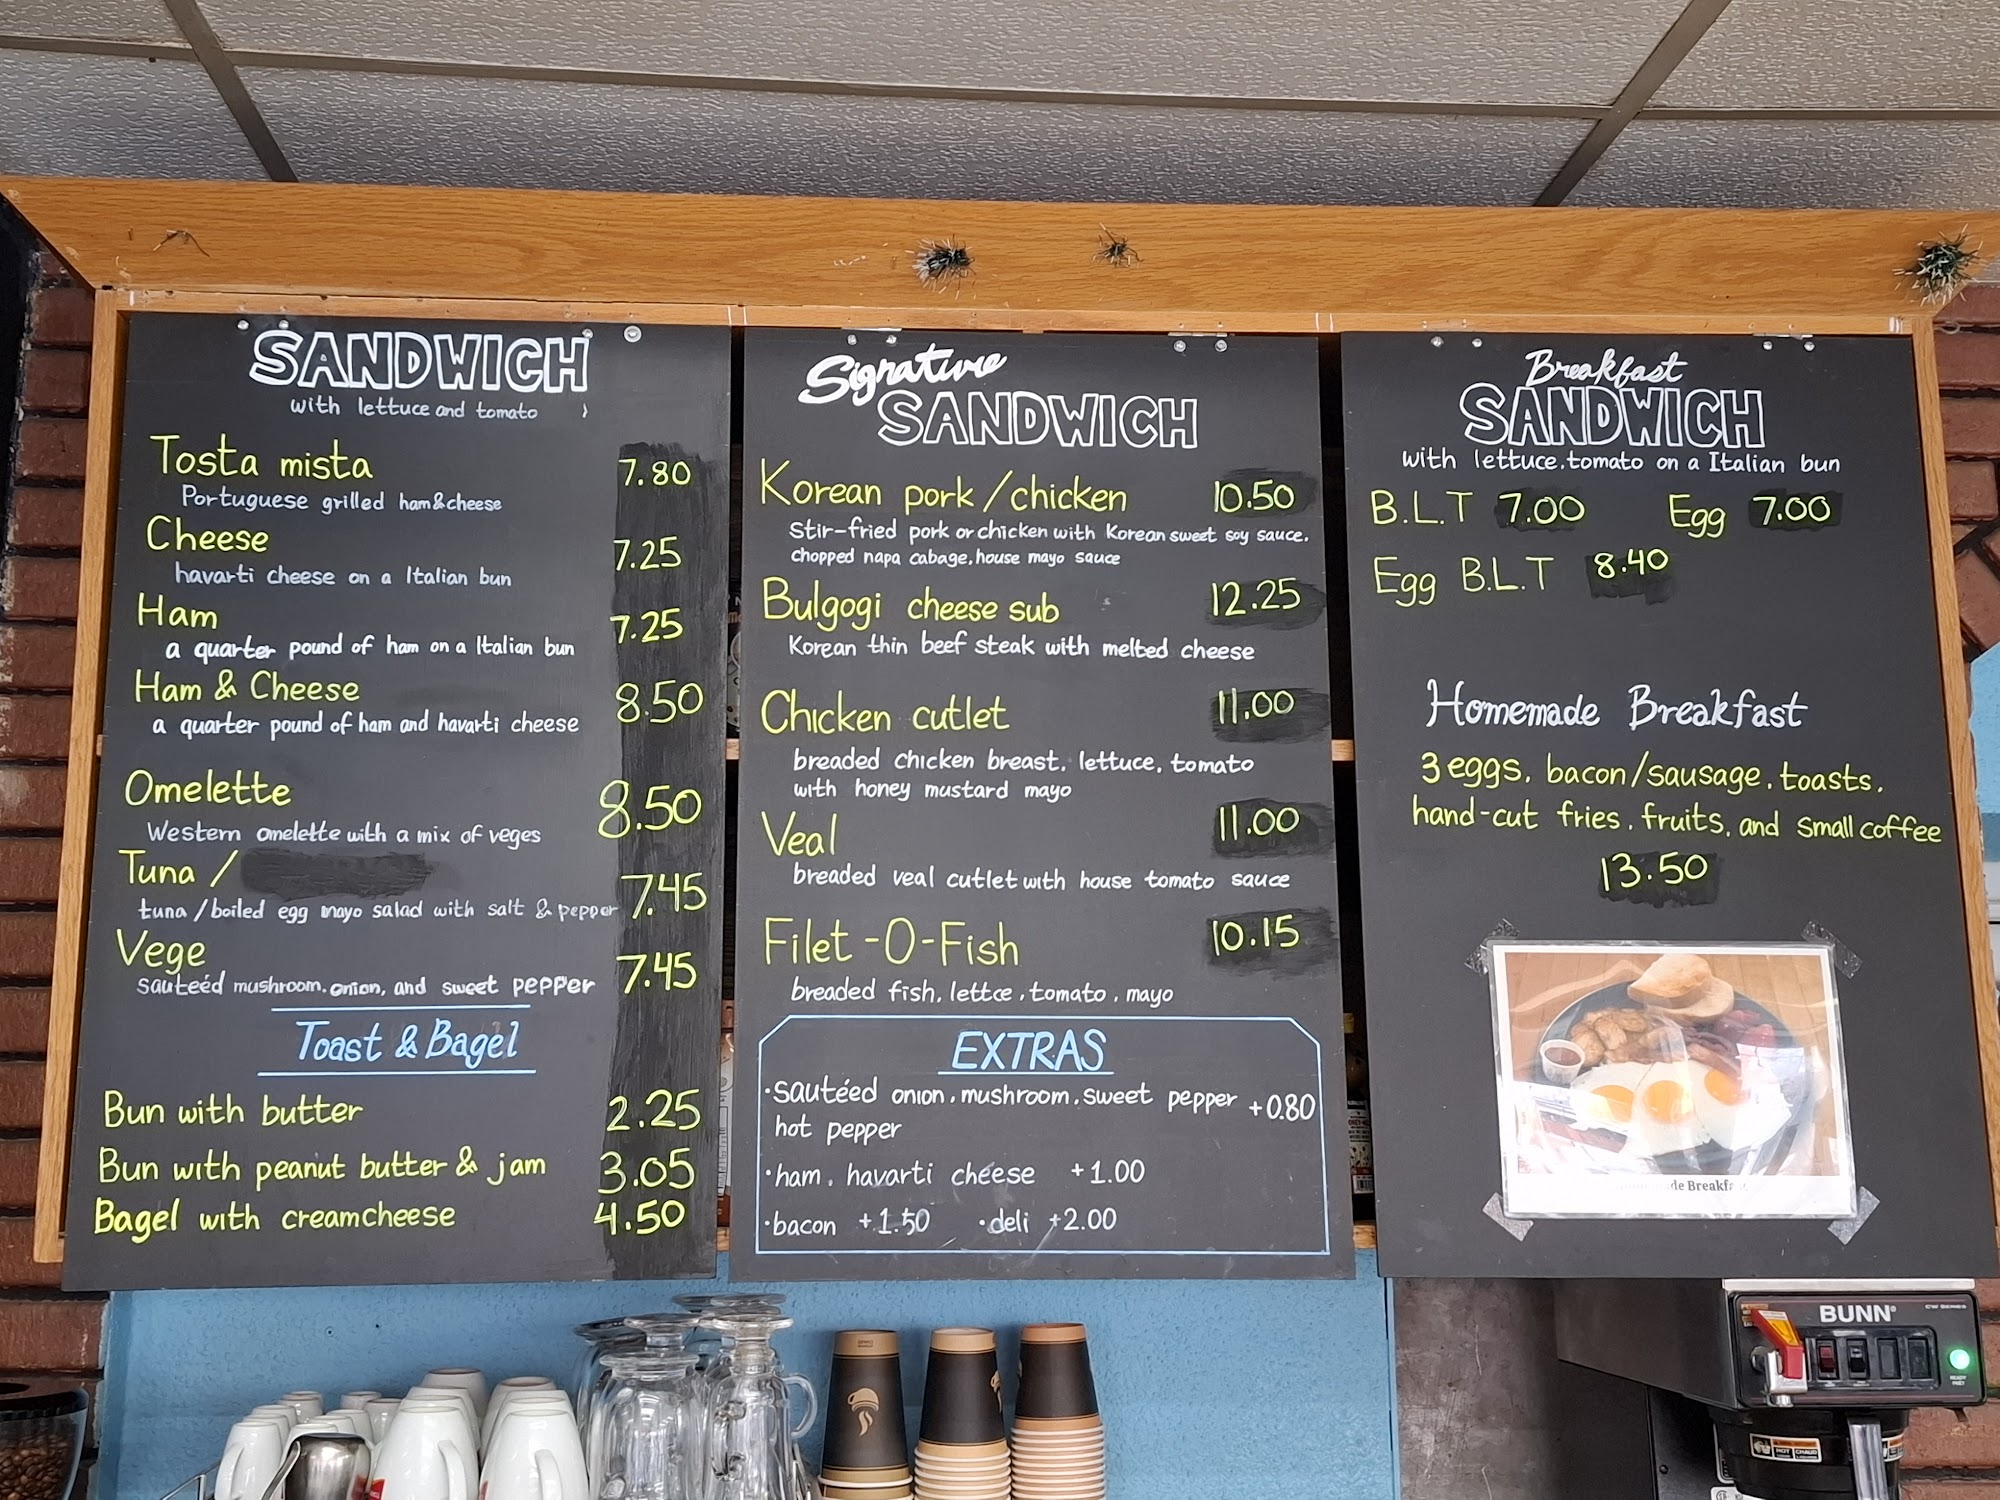 SANDWICH
with lettuce and tomato
Tosta mista 7.80
Portuguese grilled ham&cheese
Cheese 7.25
havarti cheese on a Italian bun
Ham 7.25
a quarter pound of ham on a Italian bun
Ham & Cheese 8.50
a quarter pound of ham and havarti cheese
Omelette 8.50
Western omelette with a mix of veges
Tuna / 7.45
tuna/boiled egg mayo salad with salt & pepper
Vege 7.45
sauteéd mushroom, onion, and sweet pepper
Toast & Bagel
Bun with butter 2.25
Bun with peanut butter & jam 3.05
Bagel with creamcheese 4.50
Signature
SANDWICH
Korean pork/chicken 10.50
Stir-fried pork or chicken with Korean sweet soy sauce,
chopped napa cabage, house mayo sauce
Bulgogi cheese sub 12.25
Korean thin beef steak with melted cheese
Chicken cutlet 11.00
breaded chicken breast, lettuce, tomato
with honey mustard mayo
Veal 11.00
breaded veal cutlet with house tomato sauce
Filet-O-Fish 10.15
breaded fish, lettce, tomato, mayo
EXTRAS
·sautéed onion, mushroom, sweet pepper +0.80
hot pepper
·ham, havarti cheese +1.00
·bacon +1.50 ·deli +2.00
Breakfast
SANDWICH
with lettuce, tomato on a Italian bun
B.L.T 7.00 Egg 7.00
Egg B.L.T 8.40
Homemade Breakfast
3 eggs, bacon/sausage, toasts,
hand-cut fries, fruits, and small coffee
13.50
BUNN
CW SERIES
READY